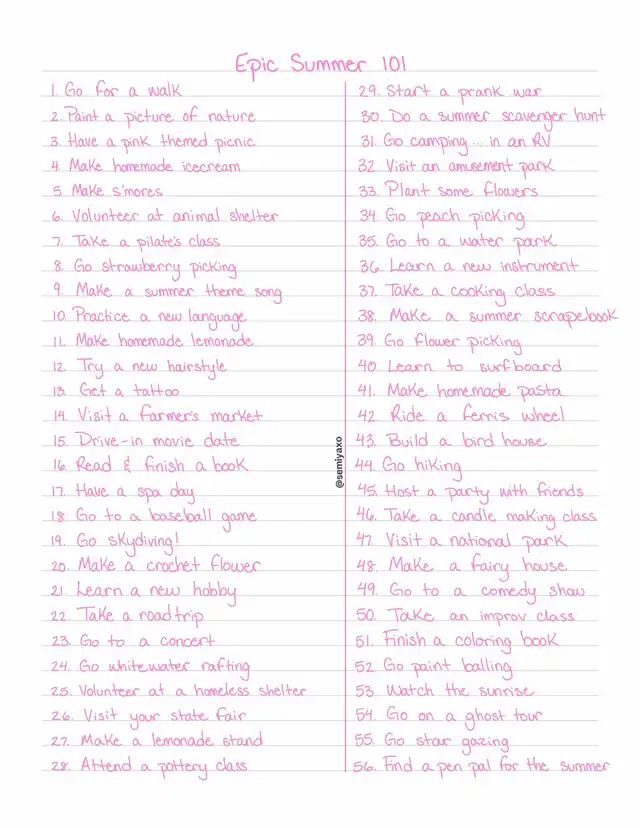 Epic Summer 101
1. Go for a walk
2. Paint a picture of nature
3. Have a pink themed picnic
4. Make homemade icecream
5. Make s'mores
6. Volunteer at animal shelter
7. Take a pilate's class
8. Go strawberry picking
9. Make a summer theme song
10. Practice a new language
11. Make homemade lemonade
12. Try a new hairstyle
13. Get a tattoo
14. Visit a farmer's market
15. Drive-in movie date
16. Read & finish a book
17. Have a spa day
18. Go to a baseball game
19. Go skydiving!
20. Make a crochet flower
21. Learn a new hobby
22. Take a roadtrip
23. Go to a concert
24. Go whitewater rafting
25. Volunteer at a homeless shelter
26. Visit your state fair
27. Make a lemonade stand
28. Attend a pottery class
@semiyaxo
29. Start a prank war
30. Do a summer scavenger hunt
31. Go camping... in an RV
32. Visit an amusement park
33. Plant some flowers
34. Go peach picking
35. Go to a water park
36. Learn a new instrument
37. Take a cooking class
38. Make a summer scrapebook
39. Go flower picking
40. Learn to surfboard
41. Make homemade pasta
42. Ride a ferris wheel
43. Build a bird house
44. Go hiking
45. Host a party with friends
46. Take a candle making class
47. Visit a national park
48. Make a fairy house
49. Go to a comedy show
50. Take an improv class
51. Finish a coloring book
52. Go paint balling
53. Watch the sunrise
54. Go on a ghost tour
55. Go star gazing
56. Find a pen pal for the summer